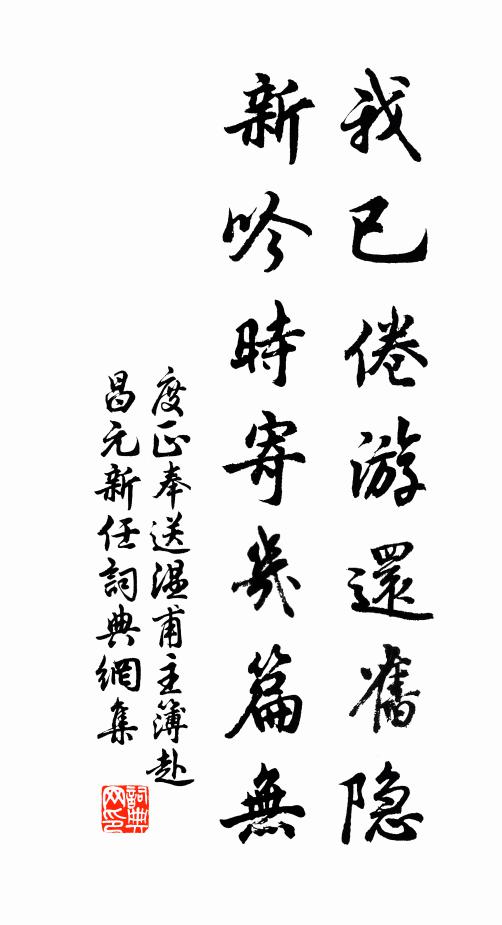 我已倦游還舊隐
新吟時寄幾篇無
度正奉送温甫主簿赴
昌元新任詞典網集
詞典
网印